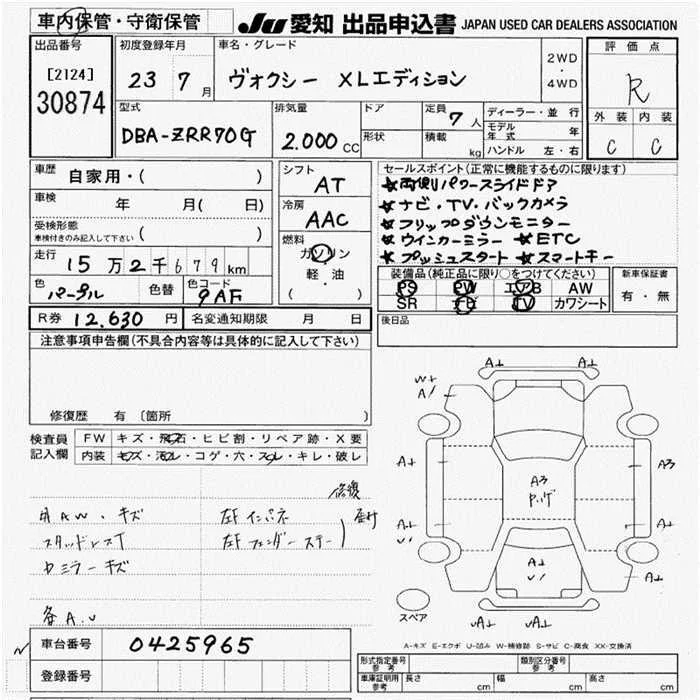 車内保管・守衛保管
JU 愛知 出品申込書 JAPAN USED CAR DEALERS ASSOCIATION
出品番号
[2124]
30874
初度登録年月
23 7月
車名・グレード
ヴォクシー XLエディション
2WD
・
4WD
評価点
R
外装 内装
C C
型式
DBA-ZRR70G
排気量
2.000 CC
ドア
形状
定員 7人
積載 kg
ディーラー・並行
モデル年式 年
ハンドル 左・右
車歴 自家用・( )
車検 年 月( 日)
受検形態
車検付きのみ記入して下さい ( )
走行 15万2千679km
色 パープル 色替 色コード 9AF
シフト
AT
冷房
AAC
燃料
ガソリン
軽・油
( )
セールスポイント(正常に機能するものに限ります)
★両側パワースライドドア
★ナビ・TV・バックカメラ
★フリップダウンモニター
★ウインカーミラー ★ETC
★プッシュスタート ★スマートキー
装備品(純正品に限り○をつけてください)
PS PW エアB AW
SR ナビ TV カワシート
新車保証書
有・無
後日品
R券 12.630円 名変通知期限 月 日
注意事項申告欄(不具合内容等は具体的に記入して下さい)
修復歴 有〔箇所 〕
検査員記入欄
FW キズ・飛石・ヒビ割・リペア跡・X要
内装 キズ・汚レ・コゲ・穴・スレ・キレ・破レ
修復
A.W.キズ
左F インパネ
スタッドレスT
左F フェンダーステー
ミラーキズ
各A.U
W±
A/
A±
A±
A±
A3
A3
A±
U/
A±
A±
U/
A±
スペア
UA±
UA±
A-キズ E-エクボ U-凹み W-補修跡 S-サビ C-腐食 XX-交換済
車台番号 0425965
登録番号
形式指定番号 参考 類別区分番号 参考
車庫証明用 参考 長さ cm 幅 cm 高さ cm